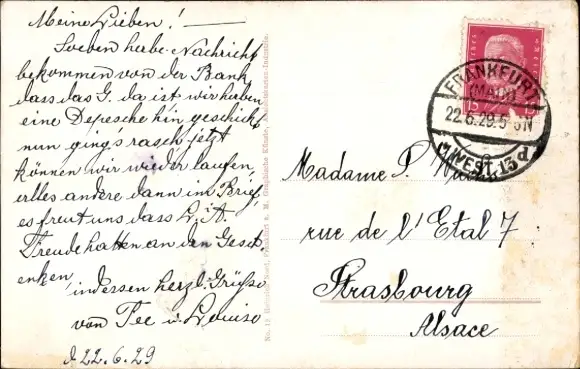 Meine Lieben! —
Soeben habe Nachricht
bekommen von der Bank
dass das G. da ist wir haben
eine Depesche hin geschickt
nun ging's rasch jetzt
können wir wieder laufen,
alles andere dann im Brief,
es freut uns dass L. A.
Freude hatten an den Gesch.
enken,
indessen herzl. Grüsse
von Tee u. Louise
d 22.6.29
FRANKFURT
(MAIN)
22.6.29.5-6N
WEST 13 d
15
Madame P.
rue de l'Etal 7
Strasbourg
Alsace